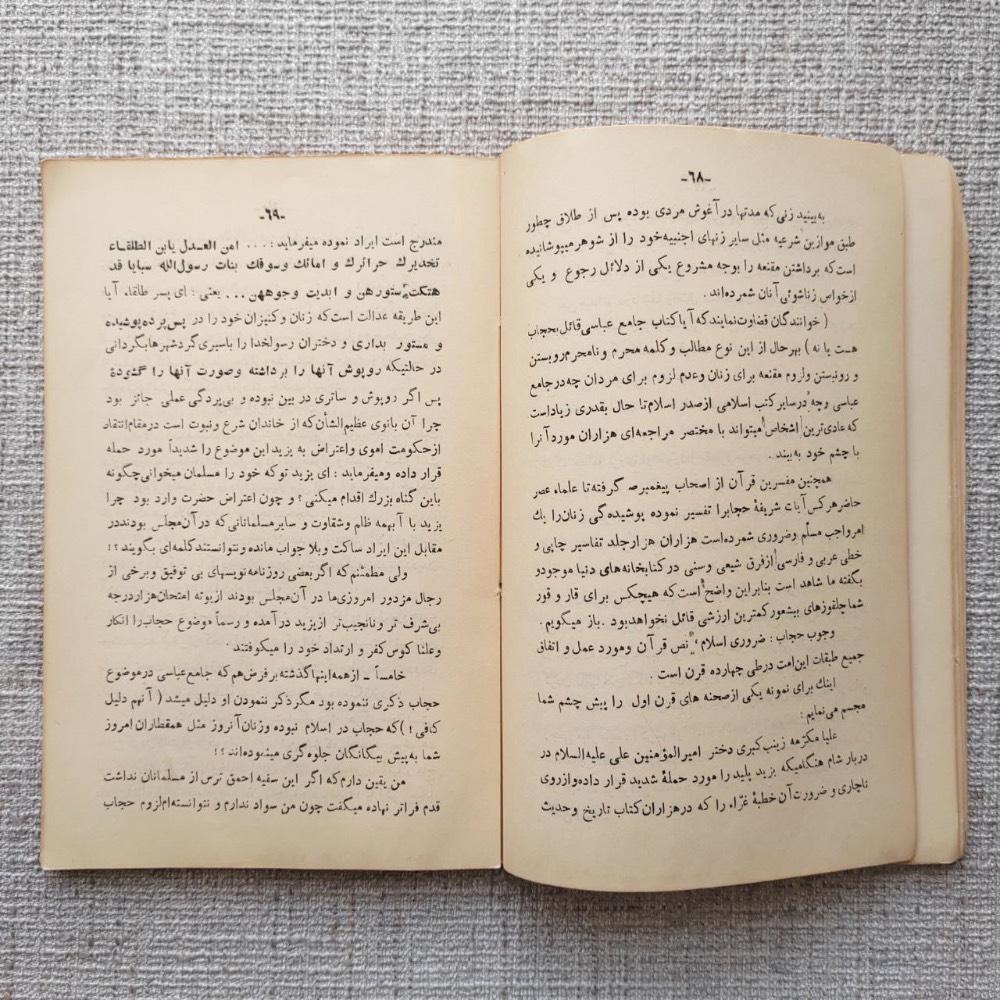 -۶۸-
به‌بینید زنی که مدتها در آغوش مردی بوده پس از طلاق چطور
طبق موازین شرعیه مثل سایر زنهای اجنبیه خود را از شوهر میپوشانیده
است که برداشتن مقنعه را بوجه مشروع یکی از دلائل رجوع و یکی
از خواص زناشوئی آنان شمرده‌اند.
( خوانندگان قضاوت نمایند که آیا کتاب جامع عباسی قائل بحجاب
هست یا نه ) بهرحال از این نوع مطالب و کلمه محرم و نامحرم و روبستن
و رونبستن و لزوم مقنعه برای زنان و عدم لزوم برای مردان چه در جامع
عباسی و چه در سایر کتب اسلامی از صدر اسلام تا حال بقدری زیاد است
که عادی‌ترین اشخاص میتواند با مختصر مراجعه‌ای هزاران مورد آنرا
با چشم خود به‌بیند .
همچنین مفسرین قرآن از اصحاب پیغمبر ص گرفته تا علماء عصر
حاضر هر کس آیات شریفهٔ حجاب را تفسیر نموده پوشیده‌گی زنان را یك
امر واجب مسلم و ضروری شمرده است هزاران هزار جلد تفاسیر چاپی و
خطی عربی و فارسی از فرق شیعی و سنی در کتابخانه‌های دنیا موجود و
بگفته ما شاهد است بنابراین واضح است که هیچکس برای قار و قور
شما جلفوزهای بیشعور کمترین ارزشی قائل نخواهد بود . باز میگویم .
وجوب حجاب : ضروری اسلام ، نص قرآن و مورد عمل و اتفاق
جمیع طبقات این امت در طی چهارده قرن است .
اینك برای نمونه یکی از صحنه های قرن اول را پیش چشم شما
مجسم می‌نمایم :
علیا مکرّمه زینب کبری دختر امیرالمؤمنین علی علیه‌السلام در
دربار شام هنگامیکه یزید پلید را مورد حملهٔ شدید قرار داده و از روی
ناچاری و ضرورت آن خطبهٔ غرّاء را که در هزاران کتاب تاریخ و حدیث
-۶۹-
مندرج است ایراد نموده میفرماید : . . . امن العدل یابن الطلقاء
تخدیرك حرائرك و امائك وسوقك بنات رسول‌الله سبایا قد
هتکت ستورهن و ابدیت وجوههن . . . یعنی : ای پسر طلقاء آیا
این طریقه عدالت است که زنان و کنیزان خود را در پس پرده پوشیده
و مستور بداری و دختران رسولخدا را باسیری گرد شهرها بگردانی
در حالتیکه روپوش آنها را برداشته وصورت آنها را گشودهٔ
پس اگر روپوش و ساتری در بین نبوده و بی‌پردگی عملی جائز بود
چرا آن بانوی عظیم‌الشأن که از خاندان شرع و نبوت است در مقام انتقاد
از حکومت اموی و اعتراض به یزید این موضوع را شدیداً مورد حمله
قرار داده و میفرماید : ای یزید تو که خود را مسلمان میخوانی چگونه
باین گناه بزرك اقدام میکنی ؟ و چون اعتراض حضرت وارد بود چرا
یزید با آنهمه ظلم و شقاوت و سایر مسلمانانی که در آن مجلس بودند در
مقابل این ایراد ساکت و بلا جواب مانده و نتوانستند کلمه‌ای بگویند ؟!
ولی مطمئنم که اگر بعضی روزنامه نویسهای بی توفیق و برخی از
رجال مزدور امروزی‌ما در آن مجلس بودند از بوته امتحان هزار درجه
بی‌شرف تر و نانجیب‌تر از یزید در آمده و رسماً موضوع حجاب را انکار
و علناً کوس کفر و ارتداد خود را میکوفتند .
خامساً ـ از همه اینها گذشته بر فرض هم که جامع عباسی در موضوع
حجاب ذکری ننموده بود مگر ذکر ننمودن او دلیل میشد ( آنهم دلیل
کافی ! ) که حجاب در اسلام نبوده و زنان آنروز مثل همقطاران امروز
شما به پیش بیگانگان جلوه گری مینموده‌اند ؟!
من یقین دارم که اگر این سفیه احمق ترس از مسلمانان نداشت
قدم فراتر نهاده میگفت چون من سواد ندارم و نتوانسته‌ام لزوم حجاب